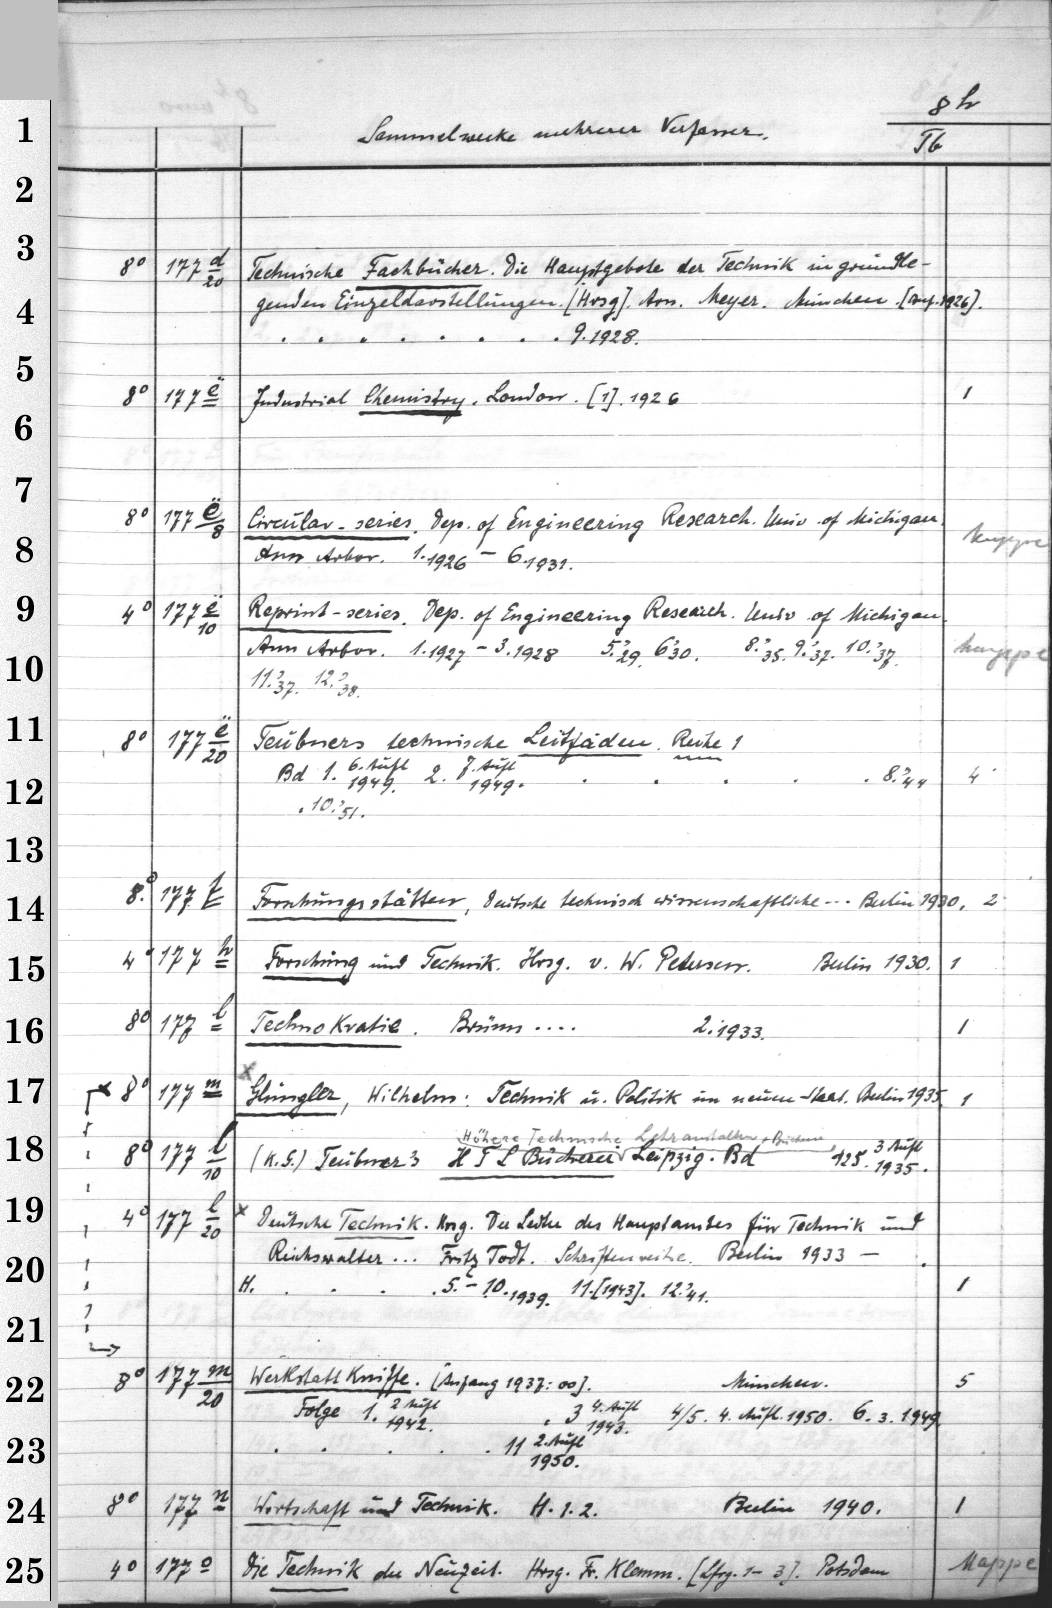 8 h
Tb
1 Sammelwerke mehrerer Verfasser.
2
3
8° 177 d/20 Technische Fachbücher. Die Hauptgebote der Technik in grundle-
4 genden Einzeldarstellungen. [Hrsg]. Arn. Meyer. München. [Anf. 1926].
. . . . . . . . 9.1928.
5
8° 177 ë Industrial Chemistry. London. [1]. 1926 1
6
7
8° 177 ë/8 Circular-series. Dep. of Engineering Research. Univ. of Michigan. Mappe
8 Ann Arbor. 1.1926 – 6.1931.
9 4° 177 ë/10 Reprint-series. Dep. of Engineering Research. Univ of Michigan.
10 Ann Arbor. 1.1927 – 3.1928 5.'29. 6'30. 8.'35. 9.'37. 10.'37. Mappe
11.'37. 12.'38.
11 8° 177 ë/20 Teubners technische Leitfäden. Reihe 1
12 Bd 1. 6. Aufl 1949. 2. 7. Aufl 1949. . . . . . 8.'44 4
. 10.'51.
13
14 8.° 177 f Forschungsstätten, Deutsche technisch wissenschaftliche --- Berlin 1930. 2
15 4° 177 h Forschung und Technik. Hrsg. v. W. Petersen. Berlin 1930. 1
16 8° 177 l Technokratie. Brünn .... 2.1933. 1
17 x 8° 177 m x Glungler, Wilhelm: Technik u. Politik im neuen Staat. Berlin 1935. 1
Höhere Technische Lehranstalten - Bücherei
18 8° 177 l/10 (K.G.) Teubner's H T L Bücherei Leipzig. Bd 125. 3 Aufl 1935.
19 4° 177 l/20 x Deutsche Technik. Hrsg. Der Leiter des Hauptamtes für Technik und
20 Reichswalter ... Fritz Todt. Schriftenreihe. Berlin 1933 – .
H. . . . . 5. – 10.1939. 11.[1943]. 12.'41. 1
21
22 8° 177 m/20 Werkstatt Kniffe. [Anfang 1937: oo]. München. 5
Folge 1. 2 Aufl 1942. . 3 4. Aufl 1943. 4/5. 4. Aufl. 1950. 6. 3. 1949.
23 . . . . . 11 2. Aufl 1950.
24 8° 177 n Wirtschaft und Technik. H. 1.2. Berlin 1940. 1
25 4° 177 o Die Technik der Neuzeit. Hrsg. Fr. Klemm. [Lfrg. 1 – 3]. Potsdam Mappe